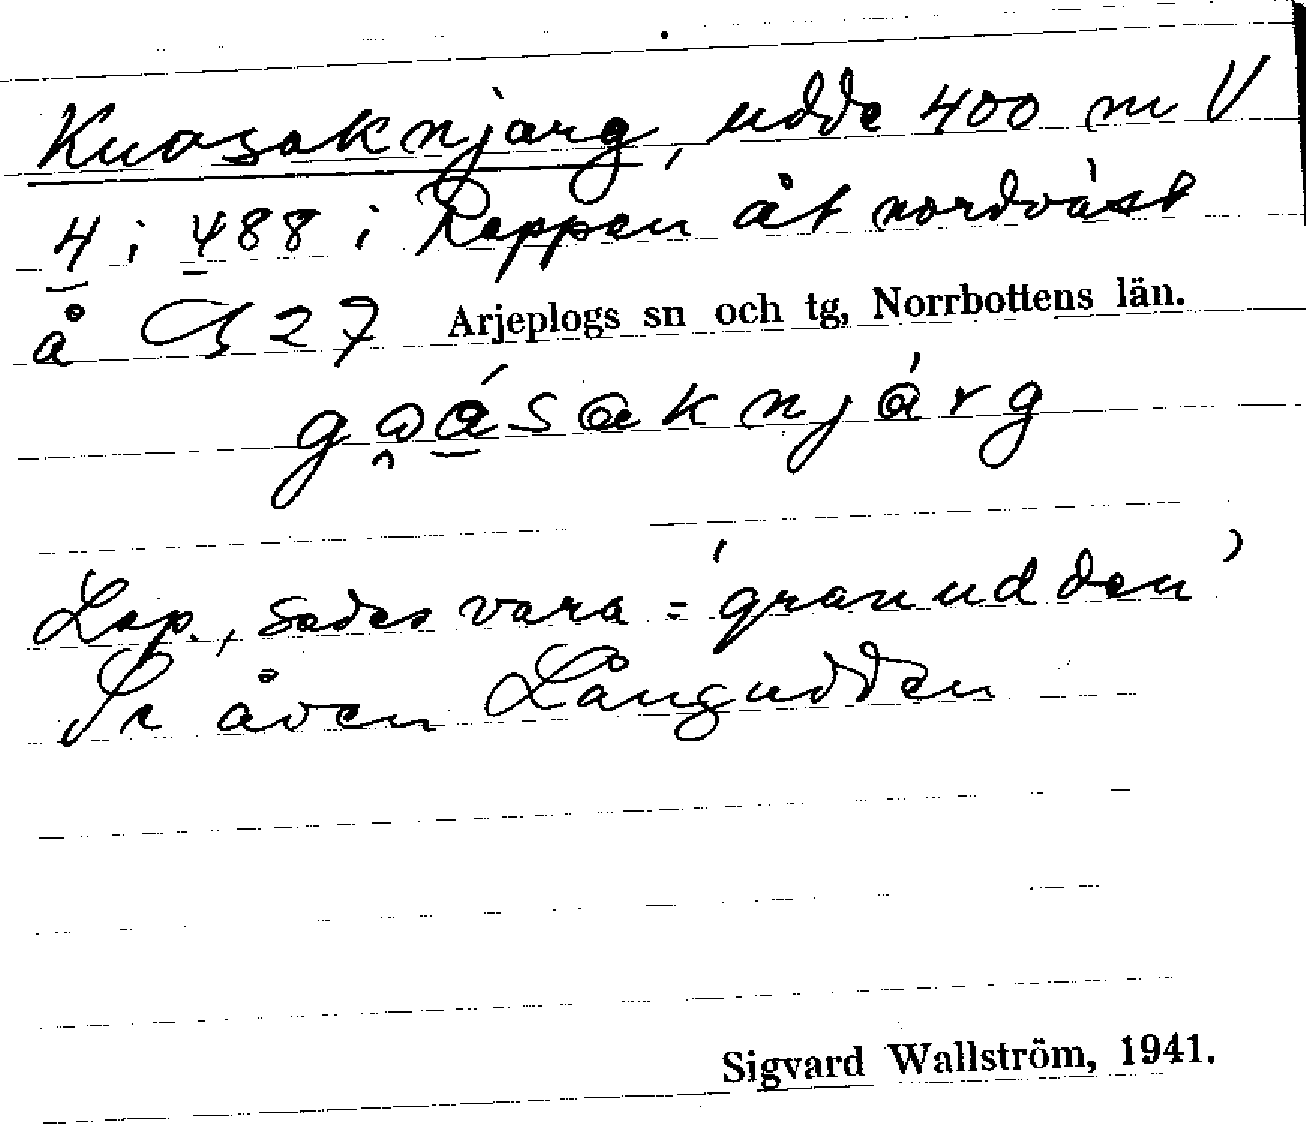 Kuosaknjarg, udde 400 m V
4 i 488 i Reppen åt nordväst
å G 27 Arjeplogs sn och tg, Norrbottens län.
gǫásaknjárg
Lap., sades vara = 'granudden'
Se även Långudden
Sigvard Wallström, 1941.